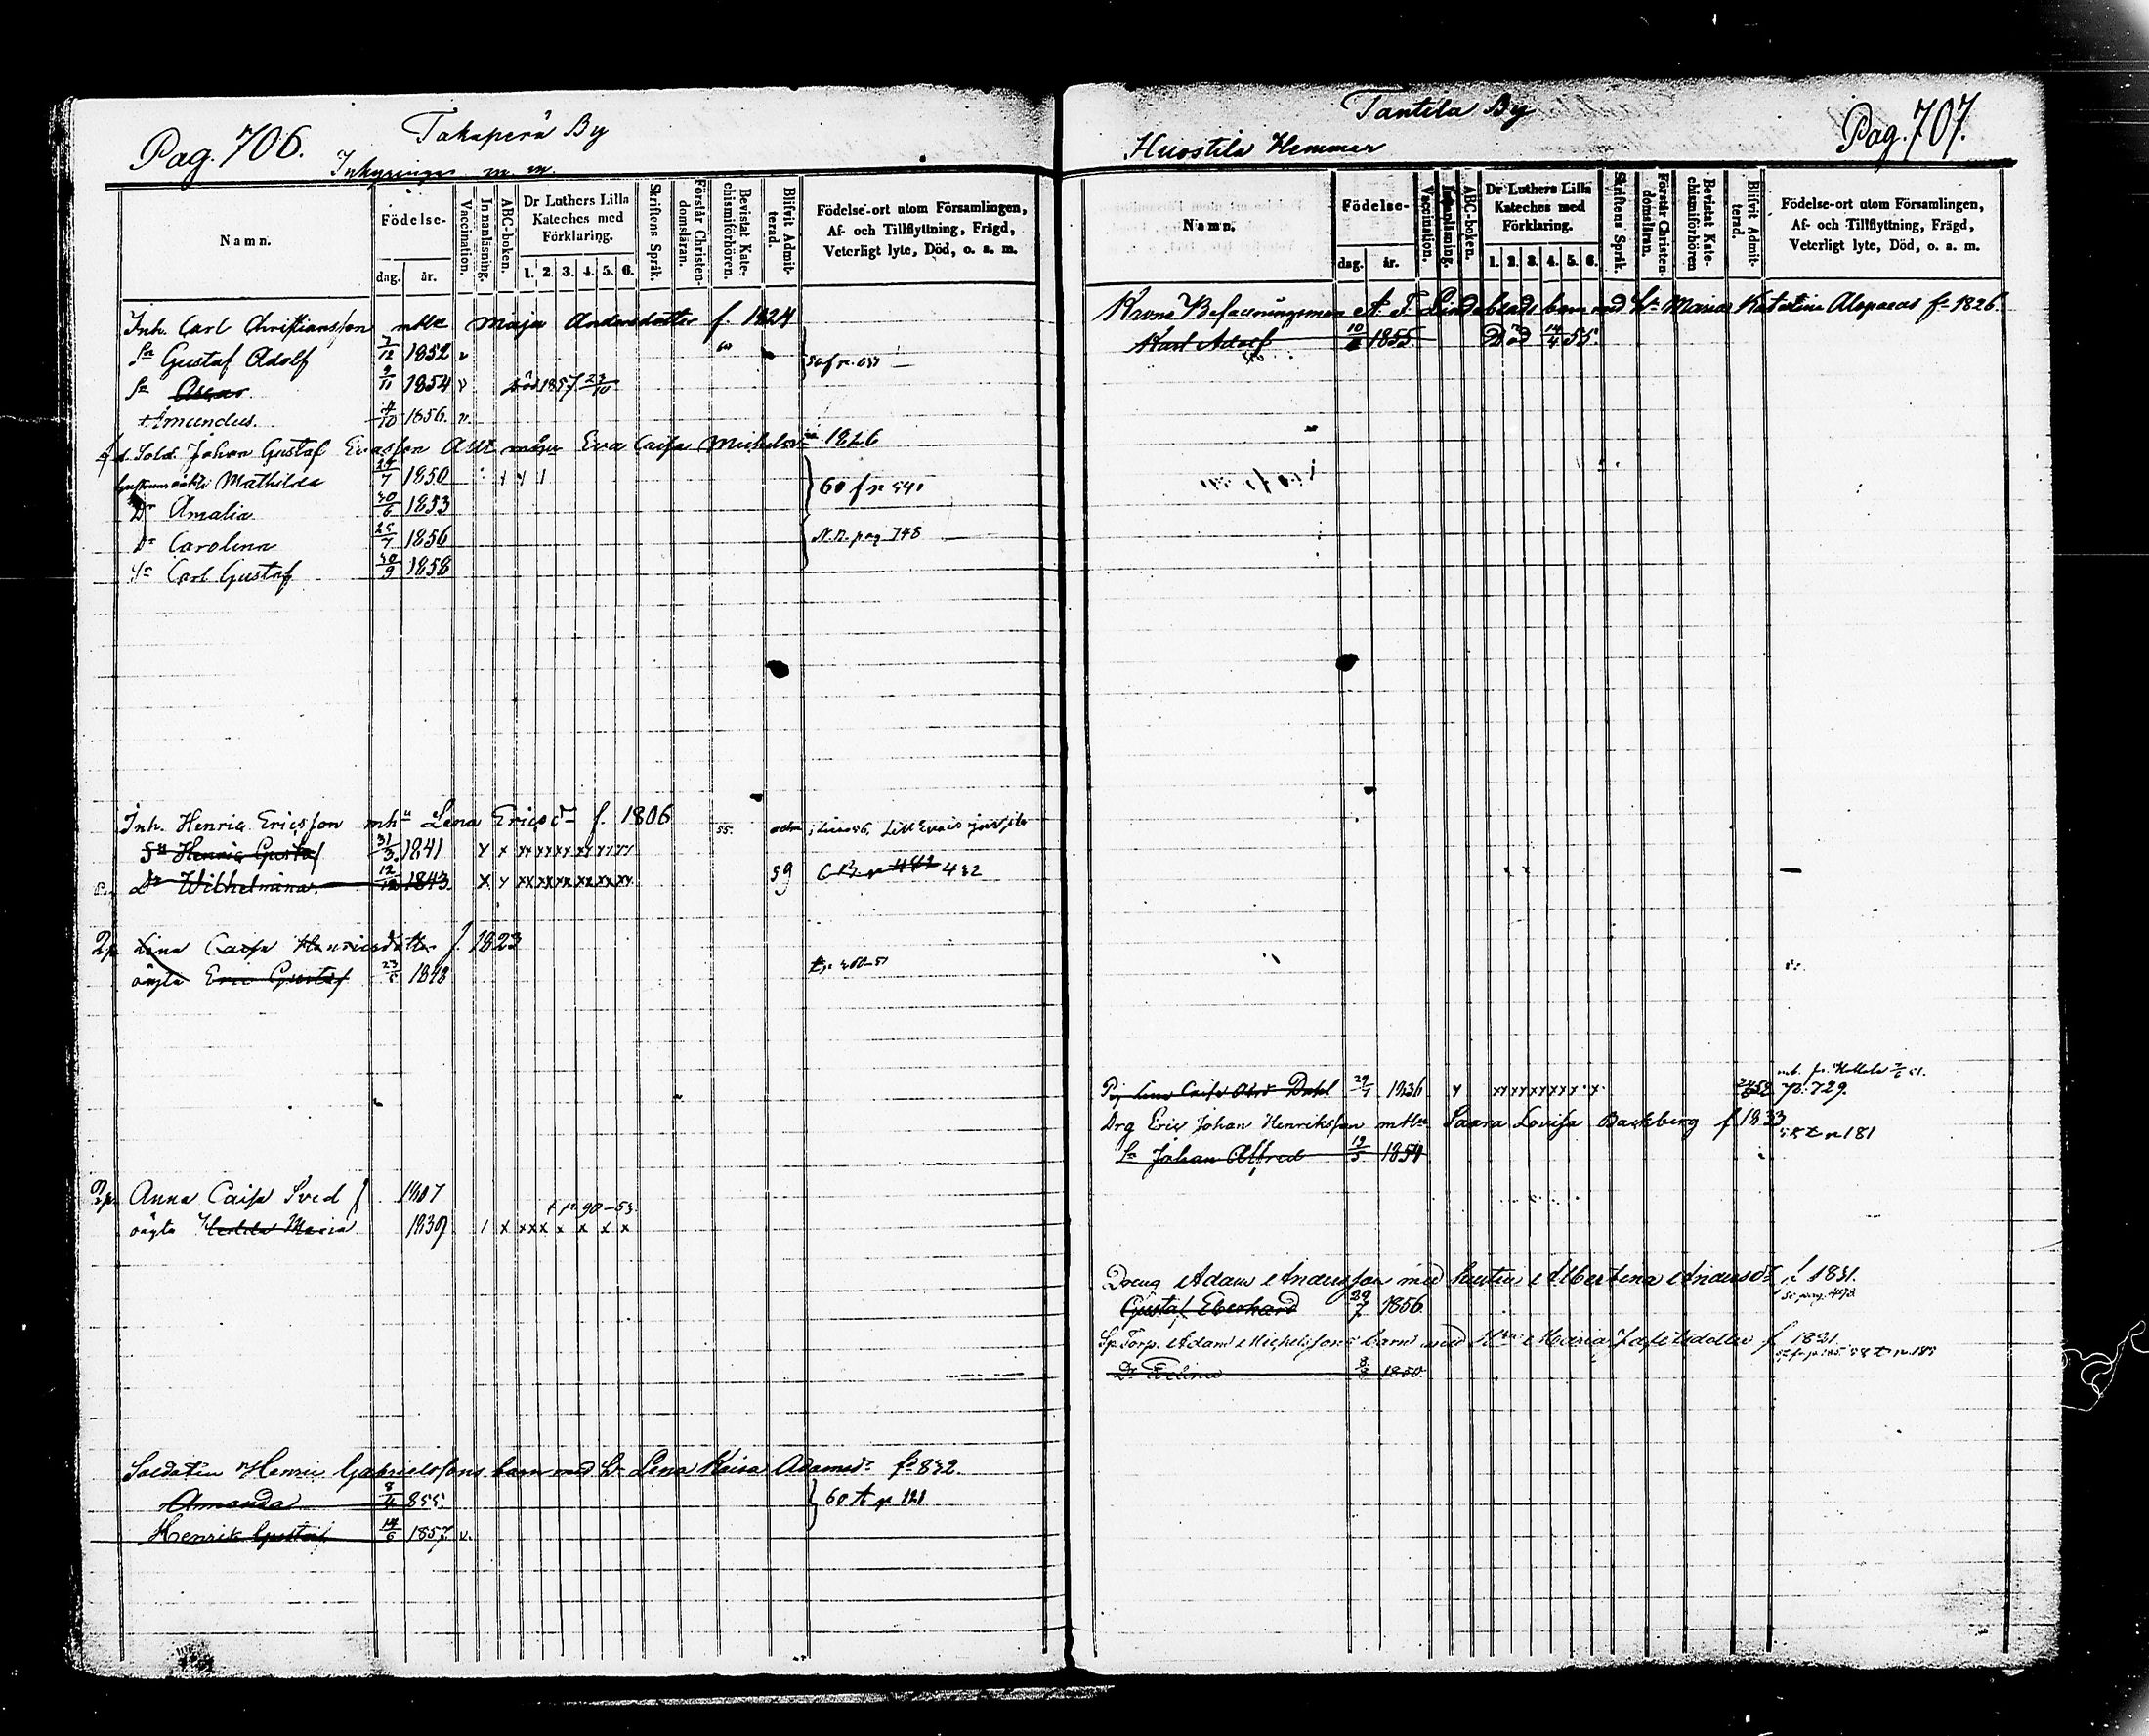 Pag. 706.
Takaperä By
Inhysingar m. m.
Namn.
Födelse-
dag.
år.
Vaccination.
Innanläsning.
ABC-boken.
Dr Luthers Lilla
Kateches med
Förklaring.
1. 2. 3. 4. 5. 6.
Skriftens Språk.
Förstår Christen-
domsläran.
Bevistat Kate-
chismiförhören.
Blifvit Admit-
terad.
Födelse-ort utom Församlingen,
Af- och Tillflyttning, Frägd,
Veterligt lyte, Död, o. a. m.
Inh. Carl Christiansson mhu Maja Andersdotter f. 1824
Sn Gustaf Adolf 7/12 1852 v
Sn Oscar 9/11 1854 v död 1857 23/10
Amundus. 4/10 1856. v.
f. d. Sold. Johan Gustaf Eva Caisa 1826
Mathilda 1850
60 fr 541
Dr Amalia 30/6 1853
Dr Carolina 25/7 1856 N.B. pag 748
Sn Carl Gustaf 30/9 1858
Inh. Henric Ericsson mhu Lena Ericsdr f. 1806 55.
Sn Henric Gustaf 31/3 1841 x x xx xx xx xx xx xx
Dr Wilhelmina 12/12 1843 x x xx xx xx xx xx xx 59 C.B. p 432
Lena Caisa Henricsdotter f. 1823
oägta Eric Gustaf 23/5 1848
Anna Caisa Sved f. 1807
t p 90-53
oägta Hedda Maria 1839 1 x xxx x x x x
Soldaten Henric Gabrielssons barn med h. Lena Kaisa Adamsdr f. 832.
Amanda 8/4 855
60 t p 121
Henrik Gustaf 14/6 1857 v.
Tantila By
Huostila Hemman
Pag. 707.
Namn.
Födelse-
dag.
år.
Vaccination.
Innanläsning.
ABC-boken.
Dr Luthers Lilla
Kateches med
Förklaring.
1. 2. 3. 4. 5. 6.
Skriftens Språk.
Förstår Christen-
domsläran.
Bevistat Kate-
chismiförhören
Blifvit Admit-
terad.
Födelse-ort utom Församlingen,
Af- och Tillflyttning, Frägd,
Veterligt lyte, Död, o. a. m.
Krono Befallningsman A. F. Lindeblads barn med h. Maria Katarina f. 1826
Karl Adolf 1855 Död 14/4 55.
Pig Lena Caisa Dahl 1836 p. 729.
Drg Eric Johan Henriksson mhu Saara Lovisa Backberg f 1833
Sn Johan Alfred 12/5 1854 58 t p 181
Dreng Adam Andersson med hustru Albertina Andersdr f. 1831.
Gustaf Eberhard 29/7 1856
Torp. Adam Michelssons barn med Maria f 1821.
Dr Felina 8/8 1850